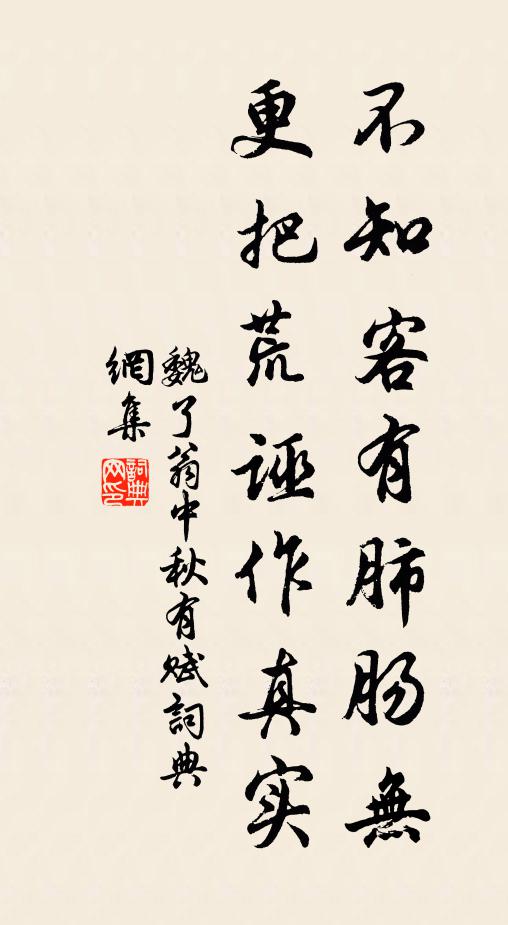 不知客有肺肠無
更把荒诬作真实
魏了翁中秋有赋詞典
網集
詞典
网印